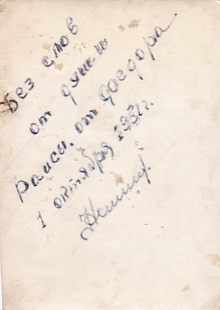 Без слов
от души
Раисе. от Федора.
1 октября 1951г.